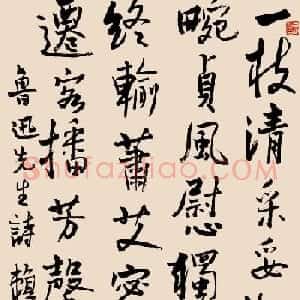 一枝清采妥
畹貞風慰獨
終輸蕭艾密
遷客播芳馨
魯迅先生詩